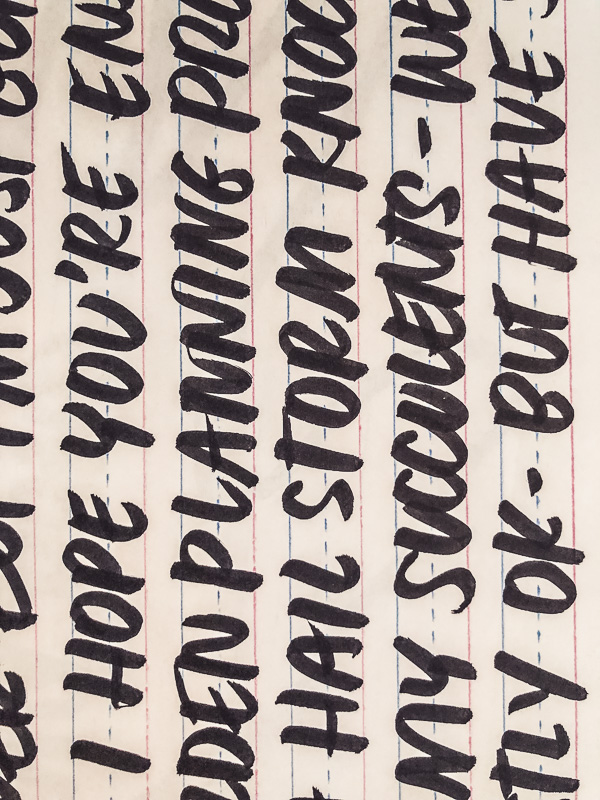 I HOPE YOU'RE EN
DEN PLANNING PRO
HAIL STORM KNOC
MY SUCCULENTS - WE
TLY OK - BUT HAVE